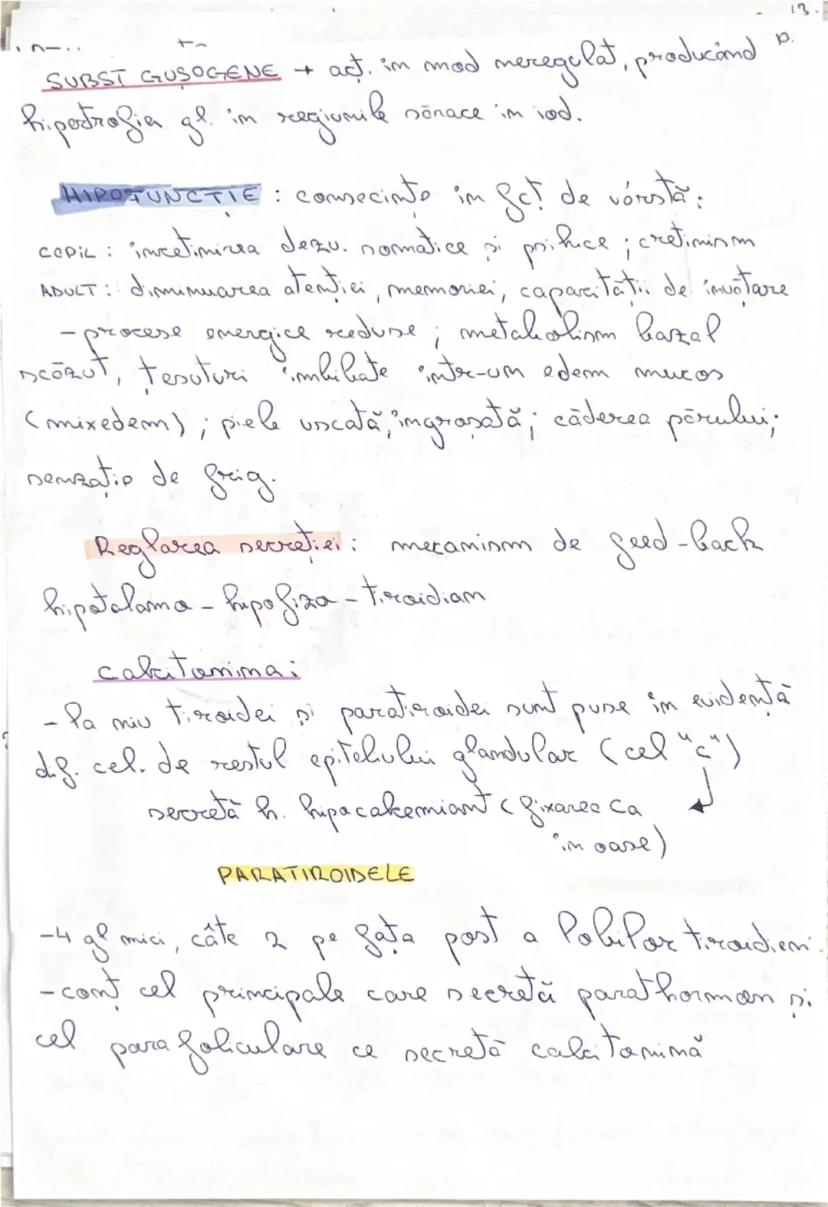 13.
SUBST GUȘOGENE → acț. în mod neregulat, producând
hipertrofia gl. în regiunile sărace în iod.
HIPOFUNCȚIE : consecințe în fcț de vârstă:
COPIL : încetinirea dezv. somatice și psihice ; cretinism
ADULT : diminuarea atenției, memoriei, capacității de învățare
- procese energice reduse ; metabolism bazal
scăzut, țesuturi îmbibate într-un edem mucos
(mixedem) ; piele uscată, îngroșată ; căderea părului ;
senzație de frig.
Reglarea secreției : mecanism de feed-back
hipotalamo - hipofizo - tiroidian
Calcitonina :
- la niv tiroidei și paratiroidei sunt puse în evidență
dif. cel. de restul epiteliului glandular (cel "c")
secretă h. hipocalcemiant (fixarea Ca
în oase)
PARATIROIDELE
- 4 gl mici, câte 2 pe fața post a lobilor tiroidieni.
- conț cel principale care secretă parathormon și
cel parafoliculare ce secretă calcitonină